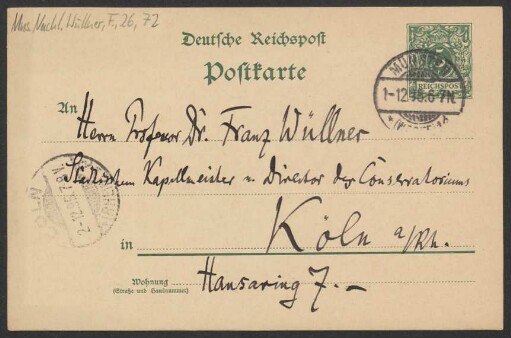 Mus. Nachl. Wüllner, F., 26, 72
Deutsche Reichspost
Postkarte
REICHSPOST
MÜNCHEN
1-12.95.6-7N.
An
Herrn Professor Dr. Franz Wüllner
Städtischem Kapellmeister u. Director des Conservatoriums
2-12.95
in
Köln a/Rh.
Wohnung
(Straße und Hausnummer)
Hansaring 7.-